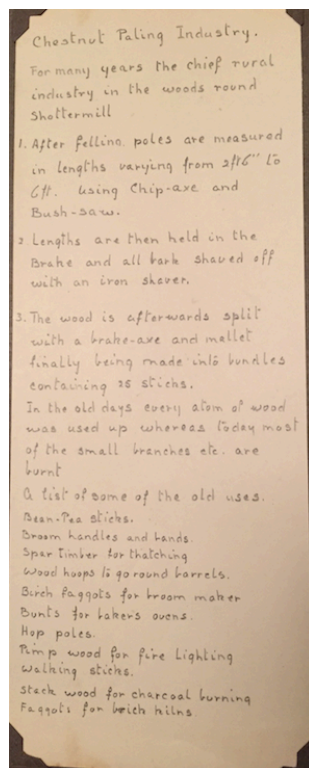 Chestnut Paling Industry.
For many years the chief rural
industry in the woods round
Shottermill
1. After felling poles are measured
in lengths varying from 2ft6" to
6ft. using Chip-axe and
Bush-saw.
2 Lengths are then held in the
Brake and all bark shaved off
with an iron shaver.
3. The wood is afterwards split
with a brake-axe and mallet
finally being made into bundles
containing 25 sticks.
In the old days every atom of wood
was used up whereas today most
of the small branches etc. are
burnt
A list of some of the old uses.
Bean-Pea sticks.
Broom handles and bands.
Spar timber for thatching
Wood hoops to go round barrels.
Birch faggots for broom maker
Bunts for bakers ovens.
Hop poles.
Pimp wood for fire lighting
Walking sticks.
Stack wood for charcoal burning
Faggots for brick kilns.